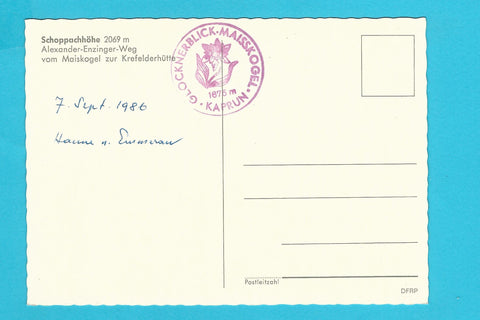 Schoppachhöhe 2069 m
Alexander-Enzinger-Weg
vom Maiskogel zur Krefelderhütte
GLOCKNERBLICK · MAISSKOGEL · KAPRUN ·
1675 m
7. Sept. 1986
Hanne u. Emmeram
Postleitzahl
DFRP